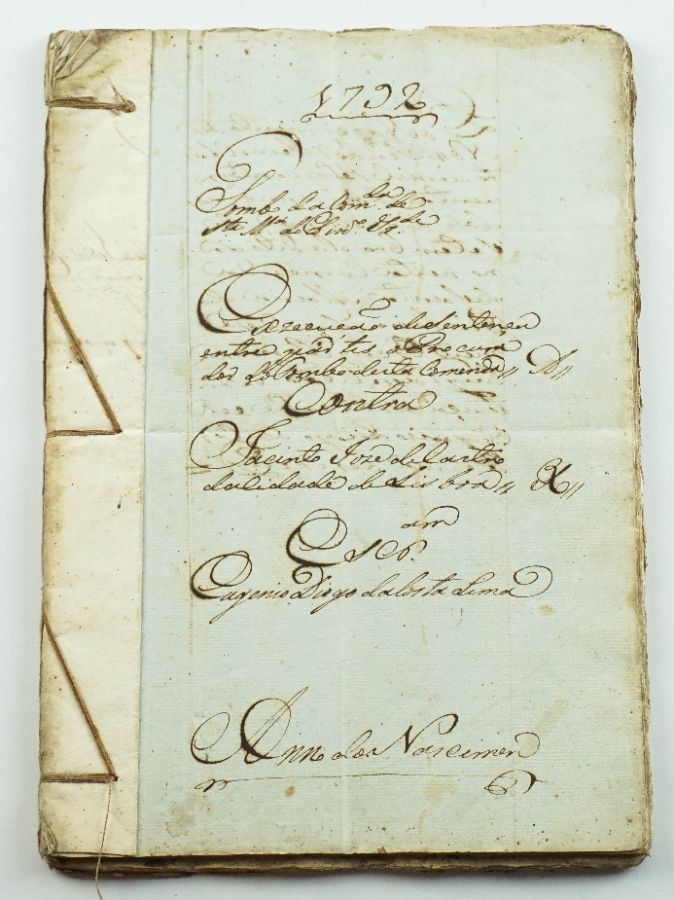 1792
Tombo da Com.da de
Sta M.a de
Execução de Sentença
entre partes o Procura
dor do Tombo desta Comenda // A //
Contra
Jacinto Joze de Castro
da Cidade de Lisboa // R //
Escr.am
Eugenio Diogo da Costa Lima
Anno do Nascimen